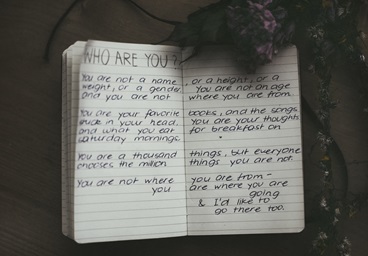 WHO ARE YOU?
You are not a name, or a height, or a
weight, or a gender, You are not an age
and you are not where you are from.
You are your favorite books, and the songs
stuck in your head. You are your thoughts
and what you eat for breakfast on
saturday mornings.
You are a thousand things, but everyone
chooses the million things you are not.
You are not where you are from –
you are where you are
going
& I'd like to
go there too.